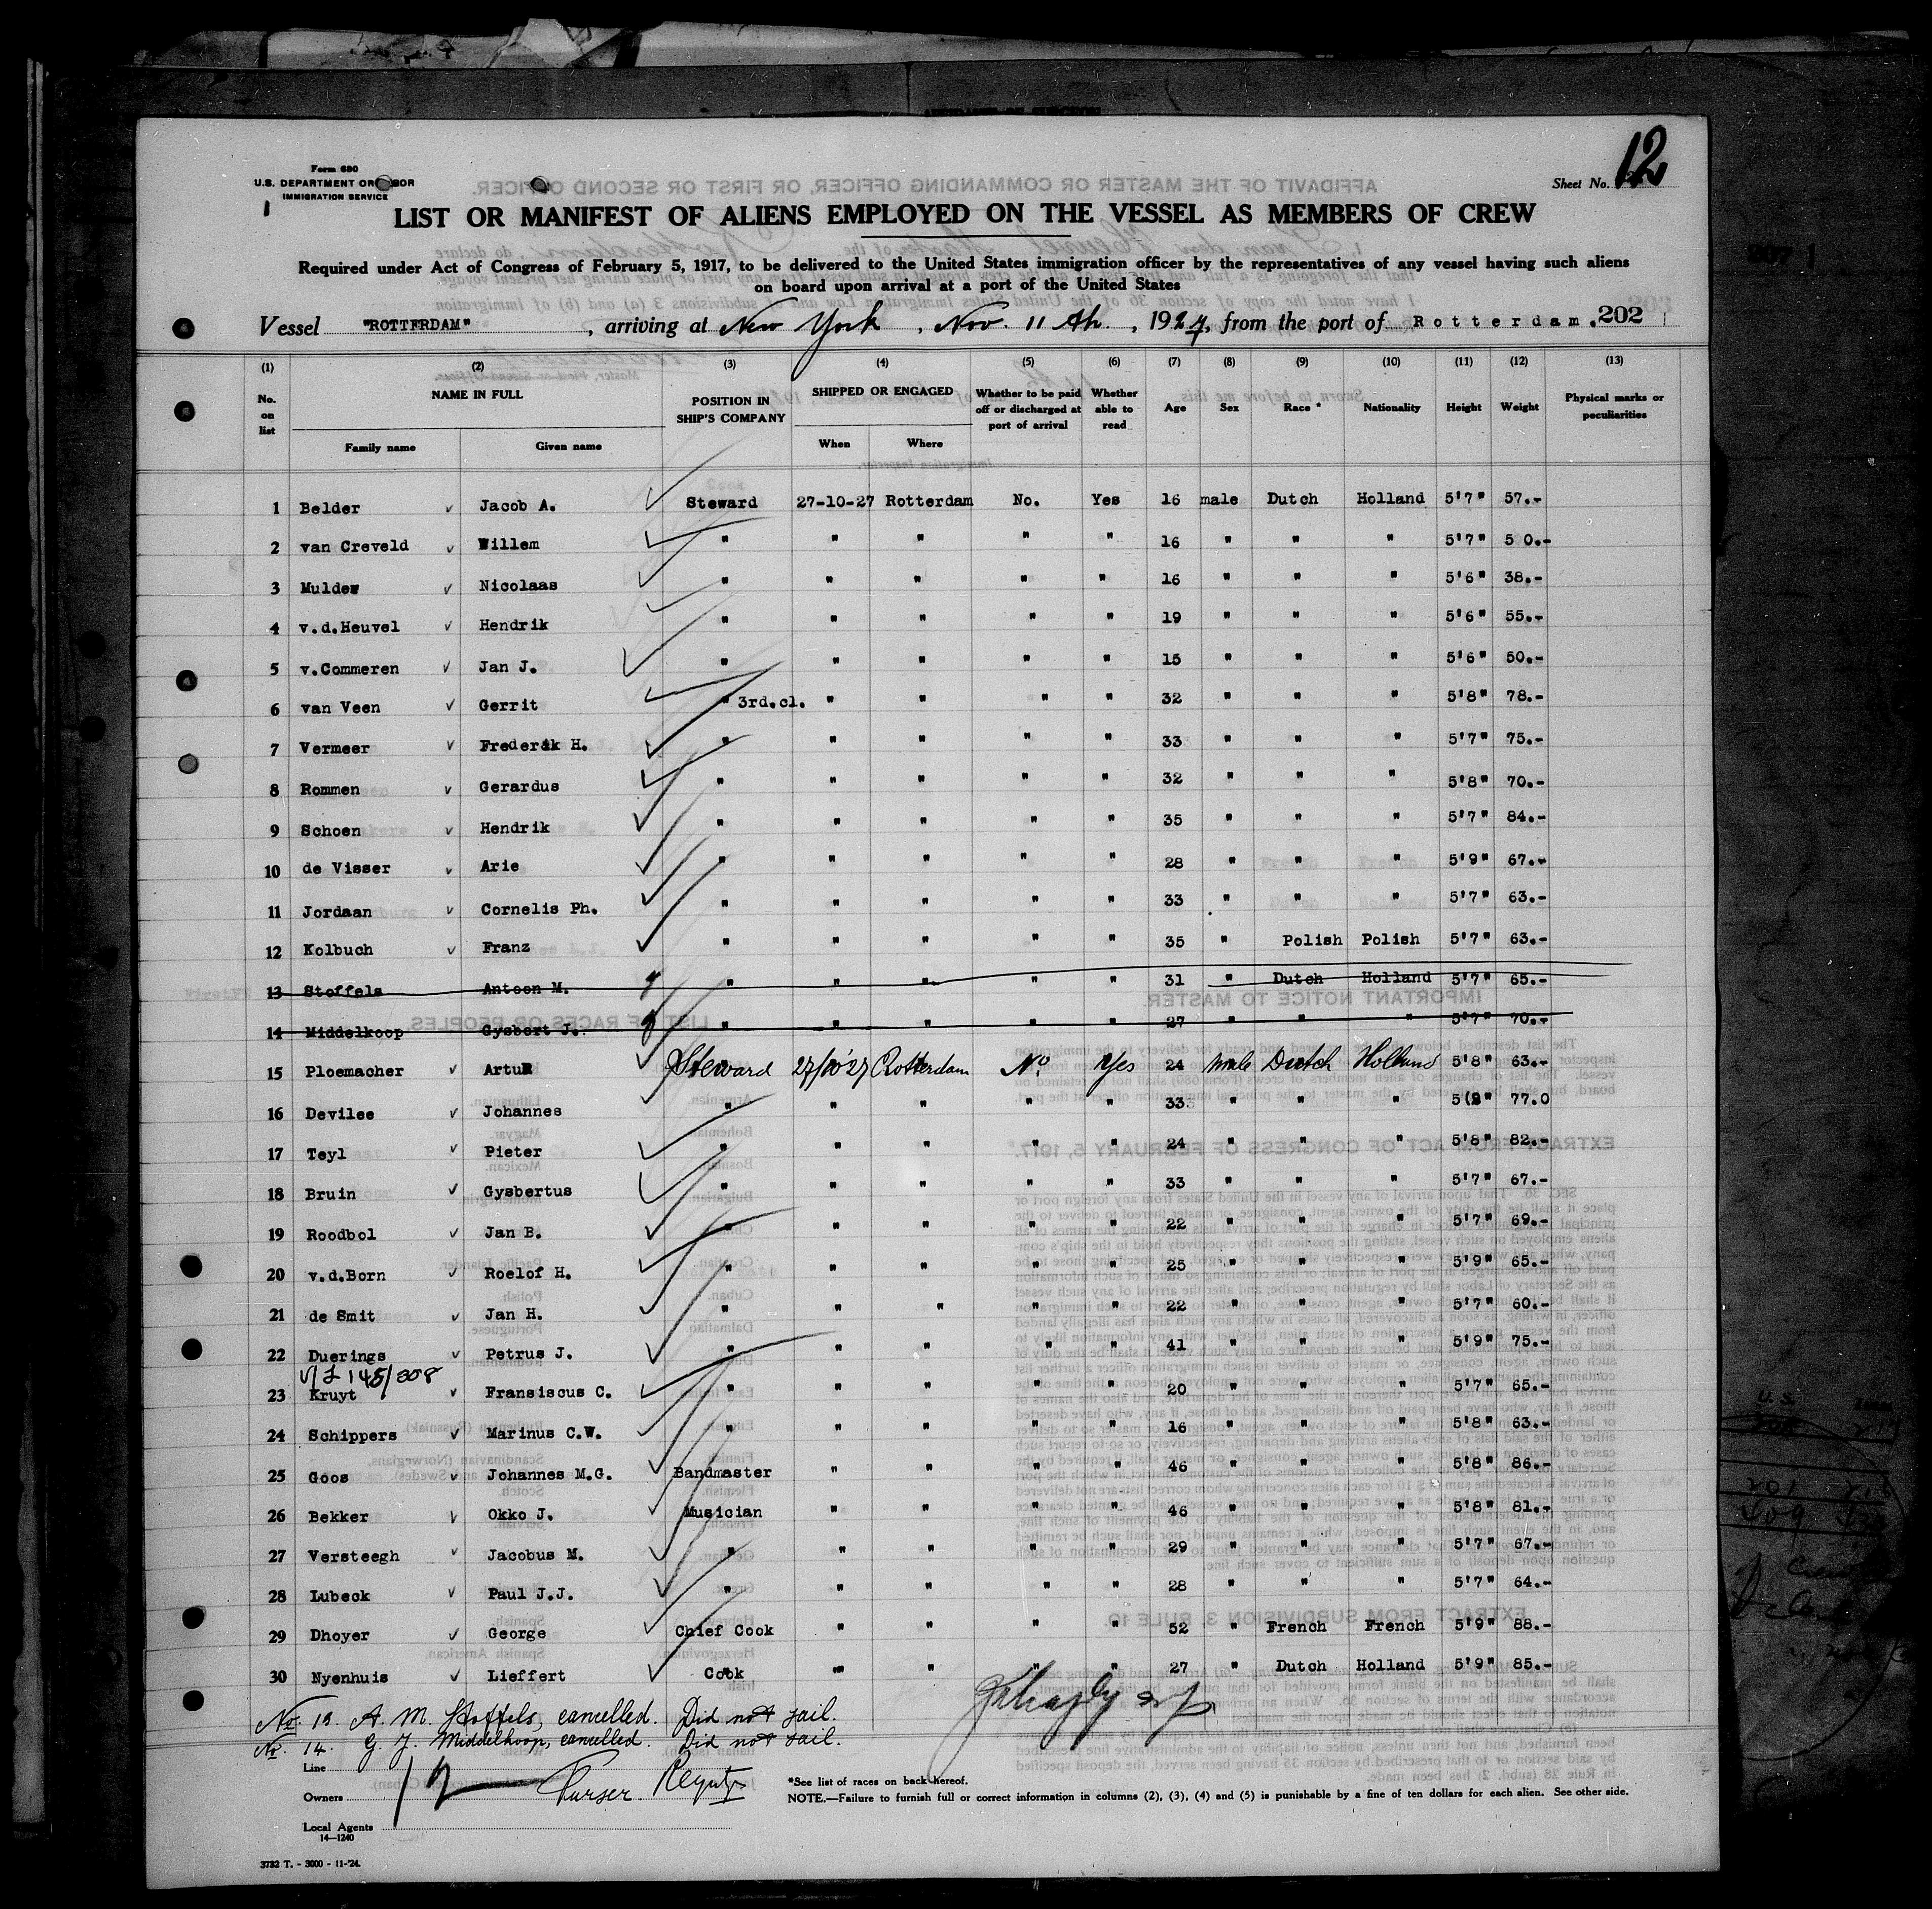 12
Form 680
U.S. DEPARTMENT OF LABOR
IMMIGRATION SERVICE
Sheet No.
LIST OR MANIFEST OF ALIENS EMPLOYED ON THE VESSEL AS MEMBERS OF CREW
Required under Act of Congress of February 5, 1917, to be delivered to the United States immigration officer by the representatives of any vessel having such aliens
on board upon arrival at a port of the United States
Vessel "ROTTERDAM", arriving at New York, Nov. 11th, 1927, from the port of Rotterdam. 202
(1) (2) (3) (4) (5) (6) (7) (8) (9) (10) (11) (12) (13)
No. on list NAME IN FULL Family name Given name POSITION IN SHIP'S COMPANY SHIPPED OR ENGAGED When Where Whether to be paid off or discharged at port of arrival Whether able to read Age Sex Race * Nationality Height Weight Physical marks or peculiarities
1 Belder Jacob A. Steward 27-10-27 Rotterdam No. Yes 16 male Dutch Holland 5'7" 57.-
2 van Creveld Willem " " " " " 16 " " " 5'7" 50.-
3 Mulder Nicolaas " " " " " 16 " " " 5'6" 38.-
4 v.d.Heuvel Hendrik " " " " " 19 " " " 5'6" 55.-
5 v.Commeren Jan J. " " " " " 15 " " " 5'6" 50.-
6 van Veen Gerrit " 3rd.cl. " " " " 32 " " " 5'8" 78.-
7 Vermeer Frederik H. " " " " " 33 " " " 5'7" 75.-
8 Rommen Gerardus " " " " " 32 " " " 5'8" 70.-
9 Schoen Hendrik " " " " " 35 " " " 5'7" 84.-
10 de Visser Arie " " " " " 28 " " " 5'9" 67.-
11 Jordaan Cornelis Ph. " " " " " 33 " " " 5'7" 63.-
12 Kolbuch Franz " " " " " 35 " Polish Polish 5'7" 63.-
13 Stoffels Antoon M. " " " " " 31 " Dutch Holland 5'7" 65.-
14 Middelkoop Gysbert J. " " " " " 27 " " " 5'7" 70.-
15 Ploemacher Artur Steward 27/10'27 Rotterdam No. Yes 24 male Dutch Holland 5'8" 63.-
16 Devilee Johannes " " " " " 33 " " " 77.0
17 Teyl Pieter " " " " " 24 " " " 5'8" 82.-
18 Bruin Gysbertus " " " " " 33 " " " 5'7" 67.-
19 Roodbol Jan B. " " " " " 22 " " " 5'7" 69.-
20 v.d.Born Roelof H. " " " " " 25 " " " 5'9" 65.-
21 de Smit Jan H. " " " " " 22 " " " 5'7" 60.-
22 Duerings Petrus J. " " " " " 41 " " " 5'9" 75.-
23 Kruyt Fransiscus C. " " " " " 20 " " " 5'7" 65.-
24 Schippers Marinus C.W. " " " " " 16 " " " 5'8" 63.-
25 Goos Johannes M.G. Bandmaster " " " " 46 " " " 5'8" 86.-
26 Bekker Okko J. Musician " " " " 46 " " " 5'8" 81.-
27 Versteegh Jacobus M. " " " " " 29 " " " 5'7" 67.-
28 Lubeck Paul J.J. " " " " " 28 " " " 5'7" 64.-
29 Dhoyer George Chief Cook " " " " 52 " French French 5'9" 88.-
30 Nyenhuis Lieffert Cook " " " " 27 " Dutch Holland 5'9" 85.-
No. 13. A. M. Stoffels, cancelled. Did not sail.
No. 14. G. J. Middelkoop, cancelled. Did not sail.
Line
Owners
Purser
Local Agents
14—1240
*See list of races on back hereof.
NOTE.—Failure to furnish full or correct information in columns (2), (3), (4) and (5) is punishable by a fine of ten dollars for each alien. See other side.
3732 T. - 3000 - 11-'24.